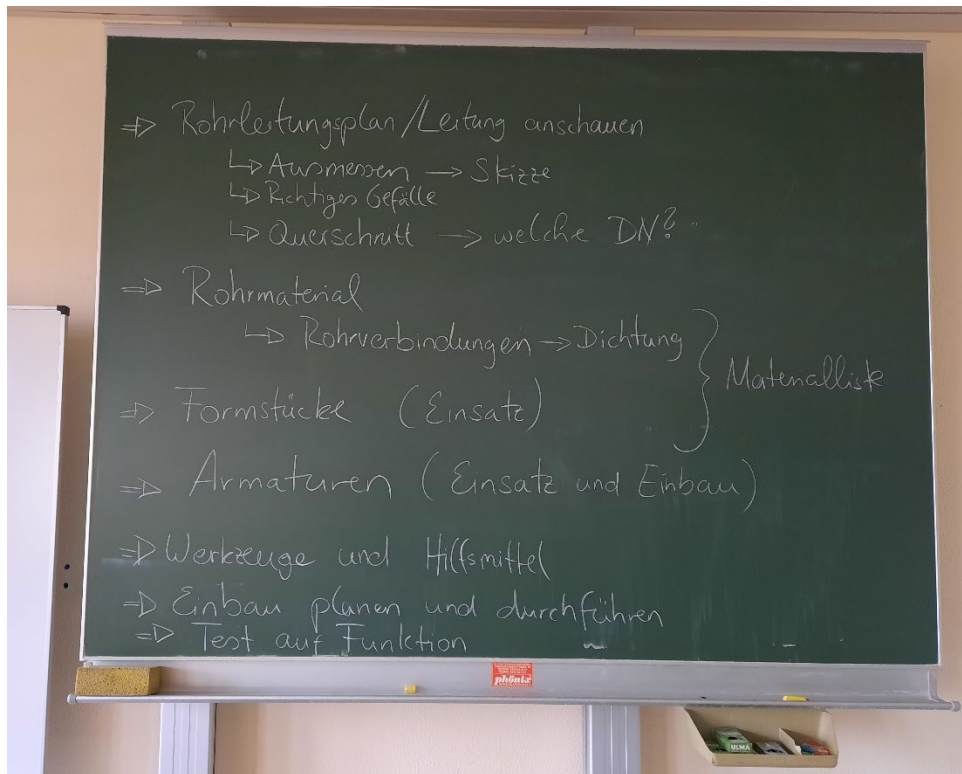 ⇒ Rohrleitungsplan/Leitung anschauen
↳ Ausmessen → Skizze
↳ Richtiges Gefälle
↳ Querschnitt → welche DN?
⇒ Rohrmaterial
↳ Rohrverbindungen → Dichtung
Materialliste
⇒ Formstücke (Einsatz)
⇒ Armaturen (Einsatz und Einbau)
⇒ Werkzeuge und Hilfsmittel
⇒ Einbau planen und durchführen
⇒ Test auf Funktion
phönix
ULMA